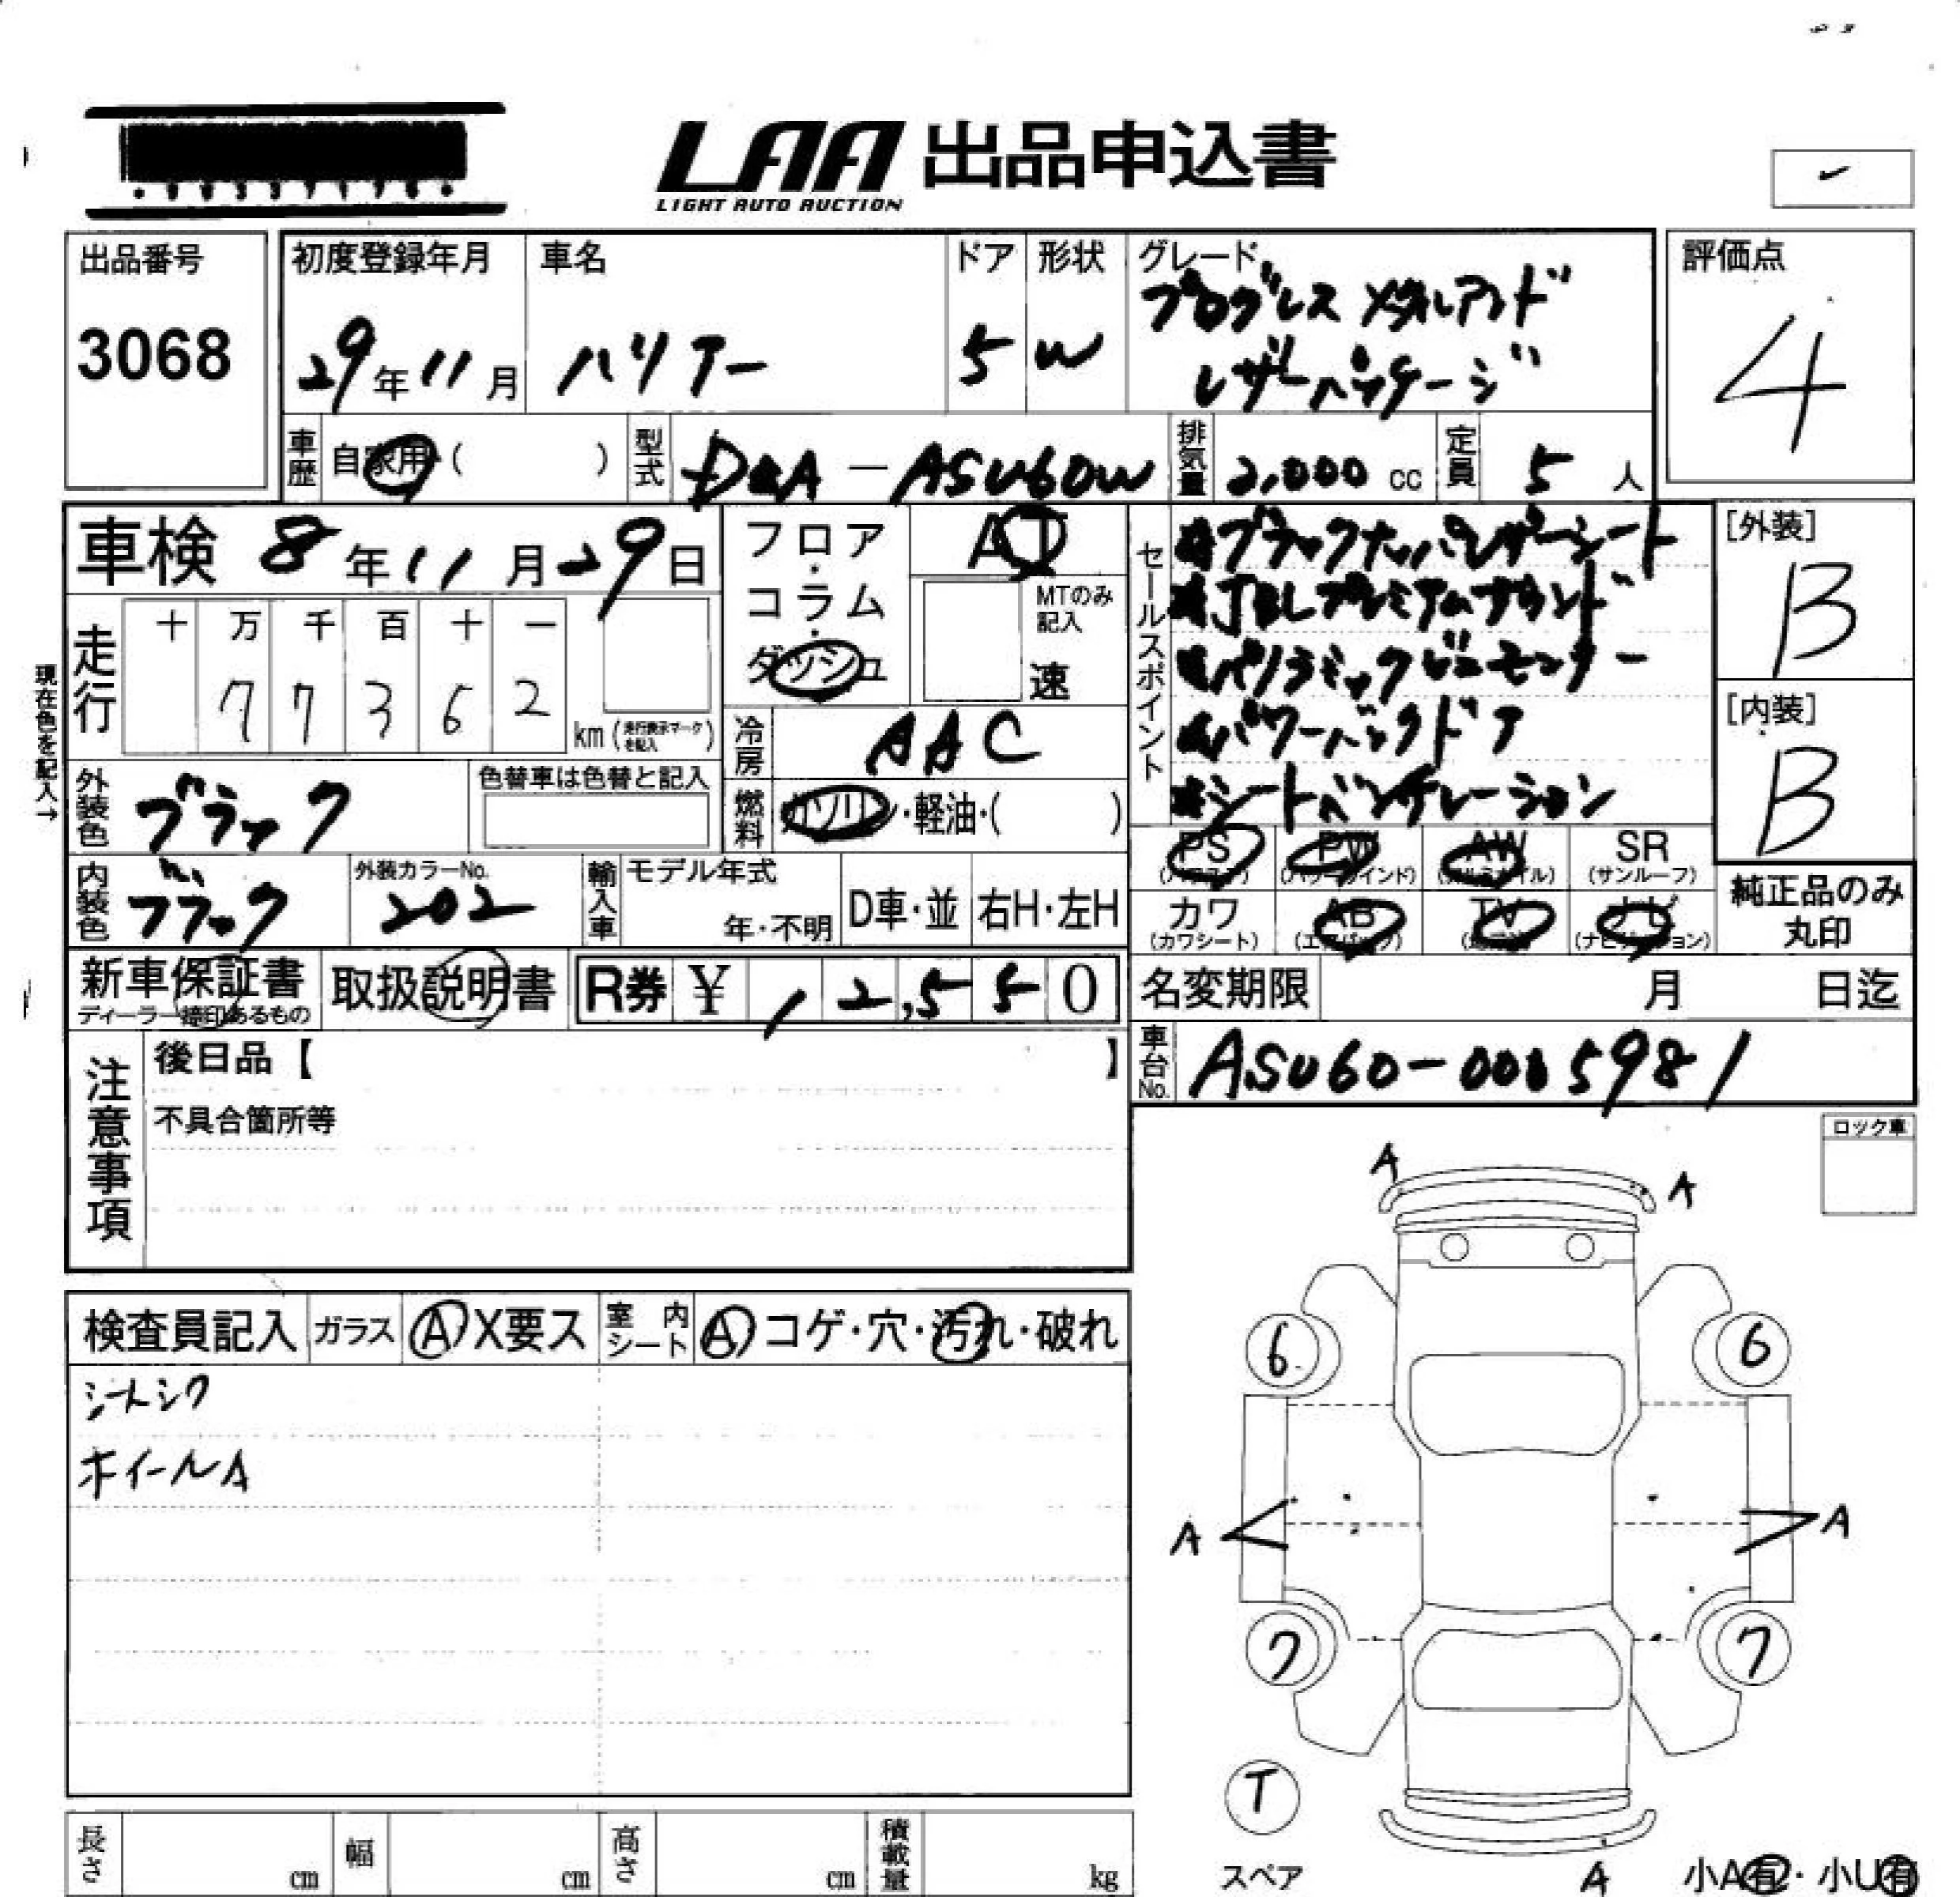 LAA 出品申込書
LIGHT AUTO AUCTION
出品番号
3068
初度登録年月
29年11月
車名
ハリアー
ドア
5
形状
W
グレード
プログレス メタルアンド
レザーパッケージ
評価点
4
車歴 自家用・( )
型式 DBA-ASU60W
排気量 2,000 cc
定員 5 人
車検 8年11月29日
フロア・コラム・ダッシュ
AT
MTのみ記入
速
走行
十 万 千 百 十 一
7 7 3 6 2
km (走行表示マークを記入)
冷房 AAC
現在色を記入→
外装色 ブラック
色替車は色替と記入
燃料 ガソリン・軽油・( )
内装色 ブラック
外装カラーNo.
202
輸入車
モデル年式
年・不明
D車・並
右H・左H
セールスポイント
#ブラックナッパレザーシート
#JBLプレミアムサウンド
#パノラミックビューモニター
#パワーバックドア
#シートベンチレーション
[外装]
B
[内装]
B
PS PW AW SR
(パワステ) (パワーウインド) (アルミホイル) (サンルーフ)
カワ AB TV ナビ
(カワシート) (エアバック) (ナビゲーション)
純正品のみ
丸印
新車保証書
ディーラー捺印あるもの
取扱説明書
R券 ¥ 12,550
名変期限 月 日迄
車台No. ASU60-0005981
注意事項
後日品【 】
不具合箇所等
ロック車
検査員記入
ガラス A X要ス
室内シート A コゲ・穴・汚れ・破れ
シートシワ
ホイールA
A
A
6
6
A
A
7
7
T
スペア
A
小A有・小U有
長さ cm
幅 cm
高さ cm
積載量 kg